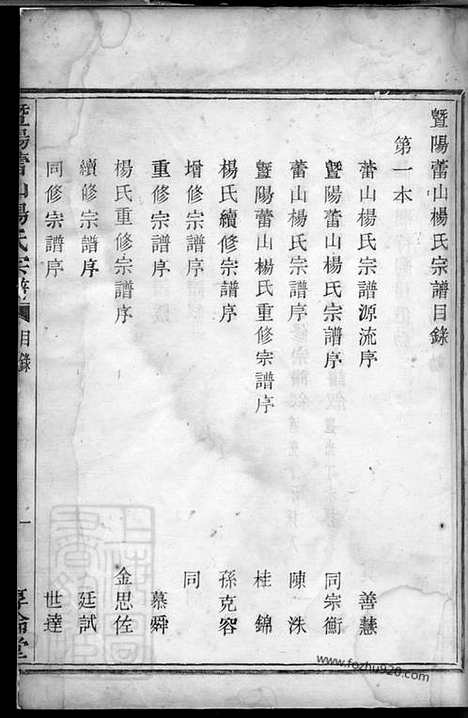 暨陽蕾山楊氏宗譜目錄
第一本
蕾山楊氏宗譜源流序 善慧
暨陽蕾山楊氏宗譜序 同宗衡
蕾山楊氏宗譜序 陳一洙
暨陽蕾山楊氏重修宗譜序 桂錦
楊氏續修宗譜序 孫克容
增修宗譜序 同
重修宗譜序 慕舜
楊氏重修宗譜序 金思佐
續修宗譜序 廷試
同修宗譜序 世達
暨陽蕾山楊氏宗譜 目錄 一 享倫堂
www.fozhu920.com